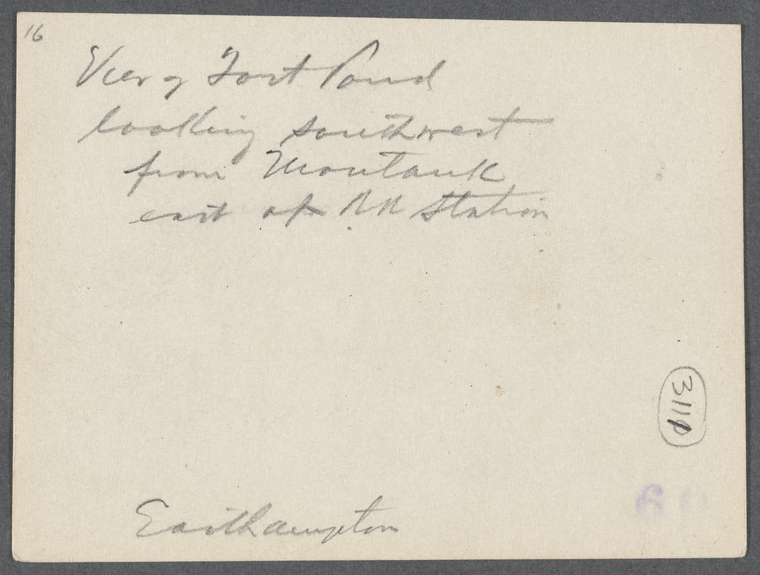 16
View of Fort Pond
looking southwest
from Montauk
east of RR Station
Easthampton